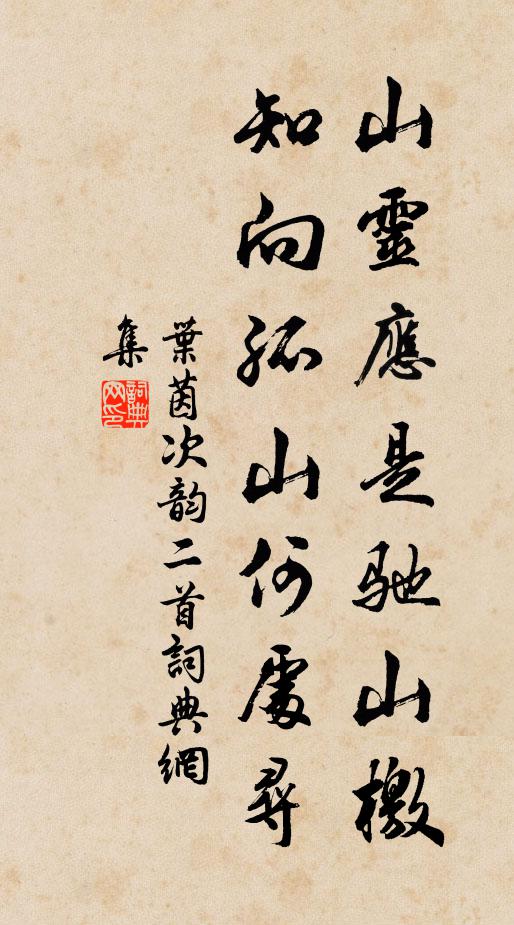 山靈應是馳山檄
知向孤山何處尋
葉茵次韵二首詞典網
集
詞典
网印